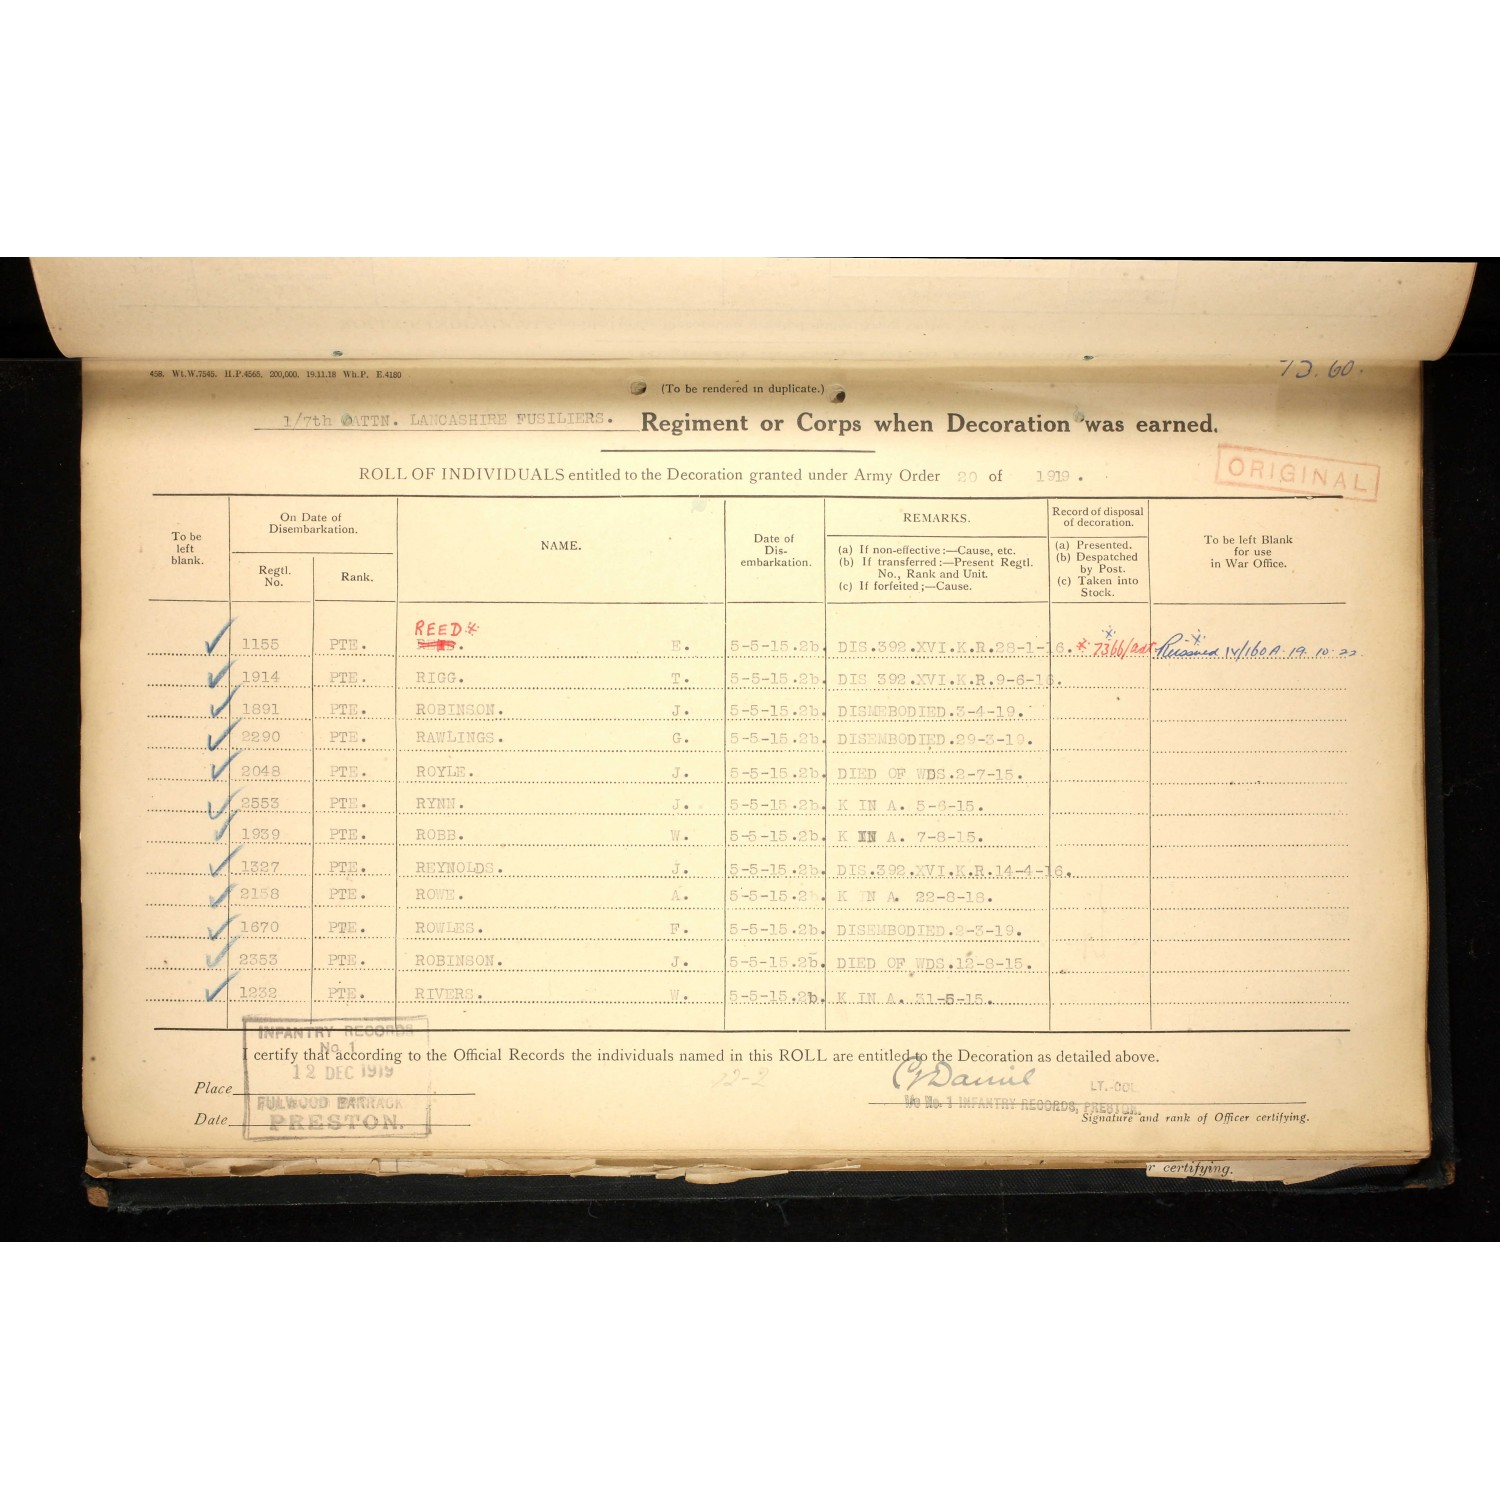 458. Wt.W.7545. H.P.4565. 200,000. 19.11.18 Wh.P. E.4180
60.
(To be rendered in duplicate.)
1/7th BATTN. LANCASHIRE FUSILIERS. Regiment or Corps when Decoration was earned.
ORIGINAL
ROLL OF INDIVIDUALS entitled to the Decoration granted under Army Order 20 of 1919.
To be left blank. On Date of Disembarkation. Regtl. No. Rank. NAME. Date of Dis-embarkation. REMARKS. (a) If non-effective:—Cause, etc. (b) If transferred:—Present Regtl. No., Rank and Unit. (c) If forfeited;—Cause. Record of disposal of decoration. (a) Presented. (b) Despatched by Post. (c) Taken into Stock. To be left Blank for use in War Office.
REED*
1155 PTE. E. 5-5-15.2b. DIS.392.XVI.K.R.28-1-16. * 7366/adt Reissued IV/160A. 19.10.22
1914 PTE. RIGG. T. 5-5-15.2b. DIS 392.XVI.K.R.9-6-16.
1891 PTE. ROBINSON. J. 5-5-15.2b. DISMEBODIED.3-4-19.
2290 PTE. RAWLINGS. G. 5-5-15.2b. DISEMBODIED.29-3-19.
2048 PTE. ROYLE. J. 5-5-15.2b. DIED OF WDS.2-7-15.
2553 PTE. RYNN. J. 5-5-15.2b. K IN A. 5-6-15.
1939 PTE. ROBB. W. 5-5-15.2b. K IN A. 7-8-15.
1327 PTE. REYNOLDS. J. 5-5-15.2b. DIS.392.XVI.K.R.14-4-16.
2158 PTE. ROWE. A. 5-5-15.2b K IN A. 22-8-18.
1670 PTE. ROWLES. F. 5-5-15.2b. DISEMBODIED.2-3-19.
2353 PTE. ROBINSON. J. 5-5-15.2b. DIED OF WDS.12-8-15.
1232 PTE. RIVERS. W. 5-5-15.2b. K IN A. 31-5-15.
INFANTRY RECORDS
No 1
I certify that according to the Official Records the individuals named in this ROLL are entitled to the Decoration as detailed above.
12 DEC 1919
Place
12-2
Daniel LT.-COL.
FULWOOD BARRACK
I/c No. 1 INFANTRY RECORDS, PRESTON.
Date
PRESTON.
Signature and rank of Officer certifying.
r certifying.